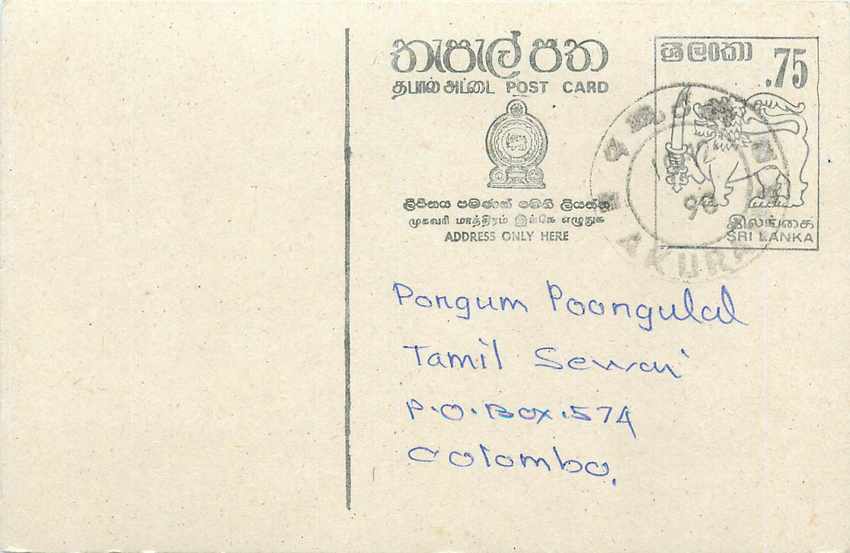 තැපැල් පත
தபால் அட்டை POST CARD
ලිපිනය පමණක් මෙහි ලියන්න
முகவரி மாத்திரம் இங்கே எழுதுக
ADDRESS ONLY HERE
ශ්‍රී ලංකා
.75
இலங்கை
SRI LANKA
AKURA
Pongum Poongulal
Tamil Sewai
P.O.Box.574
Colombo.